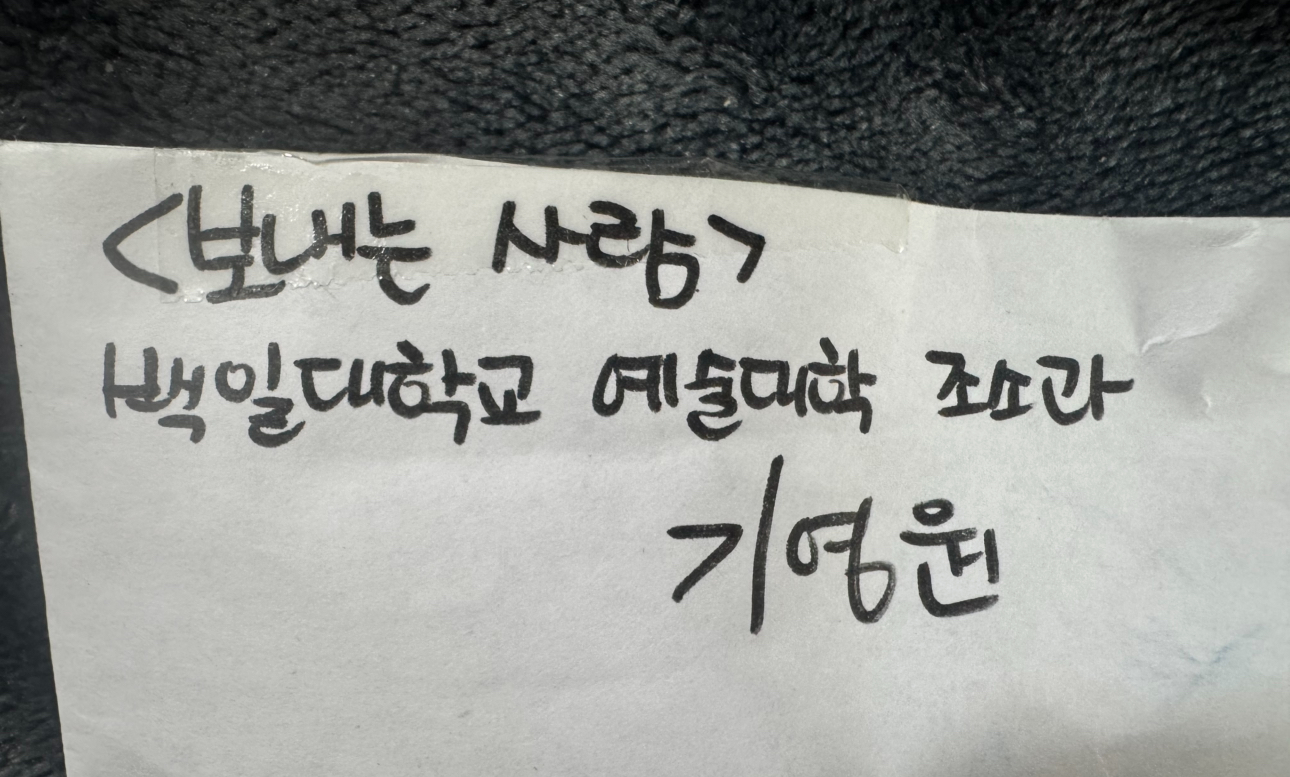 <보내는 사람>
백일대학교 예술대학 조소과
기영원